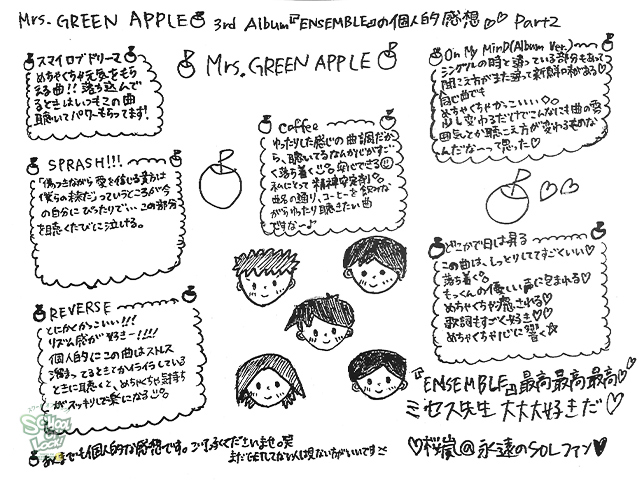 Mrs. GREEN APPLE 3rd Album『ENSEMBLE』の個人的感想♡♡ Part2
スマイロブドリーマ
めちゃくちゃ元気をもら
える曲!! 落ち込んで
るときはいつもこの曲
聴いてパワーもらってます!
Mrs. GREEN APPLE
On My MinD(Album Ver.)
シングルの時と違っている部分もあって
聞こえ方がまた違って新鮮味がある♡
同じ曲でも
めちゃくちゃかっこいい
少し変わるだけでこんなにも曲の雰
囲気とか聴こえ方が変わるものな
んだなーって思った♡
Coffee
ゆったりした感じの曲調だか
ら、聴いてるなんかじがすご
く落ち着く 安心できる
私にとって精神安定剤
曲名の通り、コーヒーを飲みな
がらゆったり聴きたい曲
ですなー♪
SPRASH!!!
「傷つきながら愛を信じる貴方は
僕らの様だ」っていうところが今
の自分にぴったりで… この部分
を聴くたびに泣ける。
どこかで日は昇る
この曲は、しっとりしててすごくいい♡
落ち着く。
もっくんの優しい声に包まれる♡
めちゃくちゃ癒される♡
歌詞もすごく好き♡
めちゃくちゃ心に響く
REVERSE
とにかくかっこいい!!!
リズム感が好きー!!!!
個人的にこの曲はストレス
溜まってるときとかイライラしている
ときに聴くと、めちゃくちゃ気持ち
がスッキリして楽になる
『ENSEMBLE』最高最高最高♡
ミセス先生 大大大好きだ♡
あくまでも個人的な感想です。ご了承くださいませ。笑
まだGETしてない人は見ない方がいいです
♡桜嵐@永遠のSOLファン♥
School of Lock!